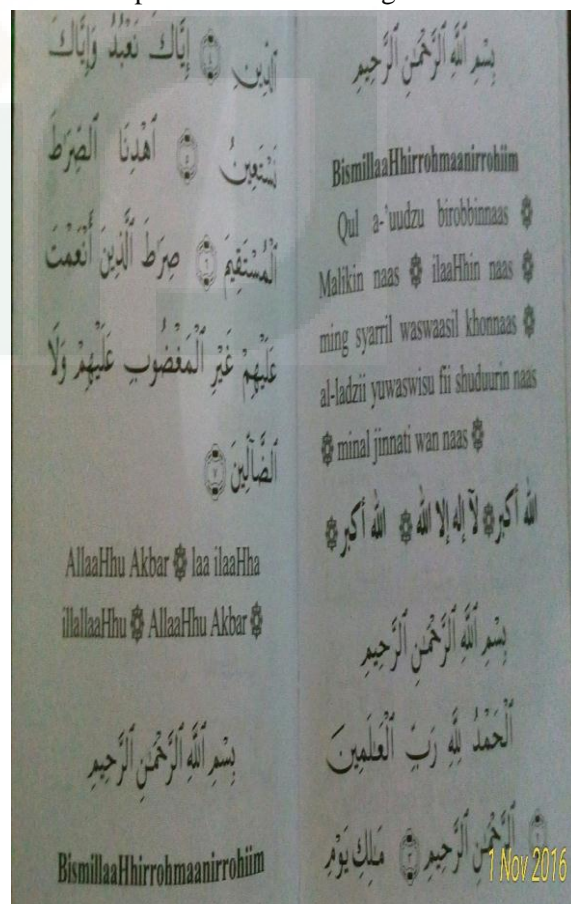 بِسْمِ ٱللَّهِ ٱلرَّحْمَٰنِ ٱلرَّحِيمِ
BismillaaHhirrohmaanirrohiim
Qul a-'uudzu birobbinnaas ۞
Malikin naas ۞ ilaaHhin naas ۞
ming syarril waswaasil khonnaas ۞
al-ladzii yuwaswisu fii shuduurin naas
۞ minal jinnati wan naas ۞
الله أكبر ۞ لآ إله إلا الله ۞ الله أكبر ۞
بِسْمِ ٱللَّهِ ٱلرَّحْمَٰنِ ٱلرَّحِيمِ
ٱلْحَمْدُ لِلَّهِ رَبِّ ٱلْعَٰلَمِينَ
ٱلرَّحْمَٰنِ ٱلرَّحِيمِ ٣ مَٰلِكِ يَوْمِ
1 Nov 2016
ٱلدِّينِ ٤ إِيَّاكَ نَعْبُدُ وَإِيَّاكَ
نَسْتَعِينُ ٥ ٱهْدِنَا ٱلصِّرَٰطَ
ٱلْمُسْتَقِيمَ ٦ صِرَٰطَ ٱلَّذِينَ أَنْعَمْتَ
عَلَيْهِمْ غَيْرِ ٱلْمَغْضُوبِ عَلَيْهِمْ وَلَا
ٱلضَّآلِّينَ ٧
AllaaHhu Akbar ۞ laa ilaaHha
illallaaHhu ۞ AllaaHhu Akbar ۞
بِسْمِ ٱللَّهِ ٱلرَّحْمَٰنِ ٱلرَّحِيمِ
BismillaaHhirrohmaanirrohiim